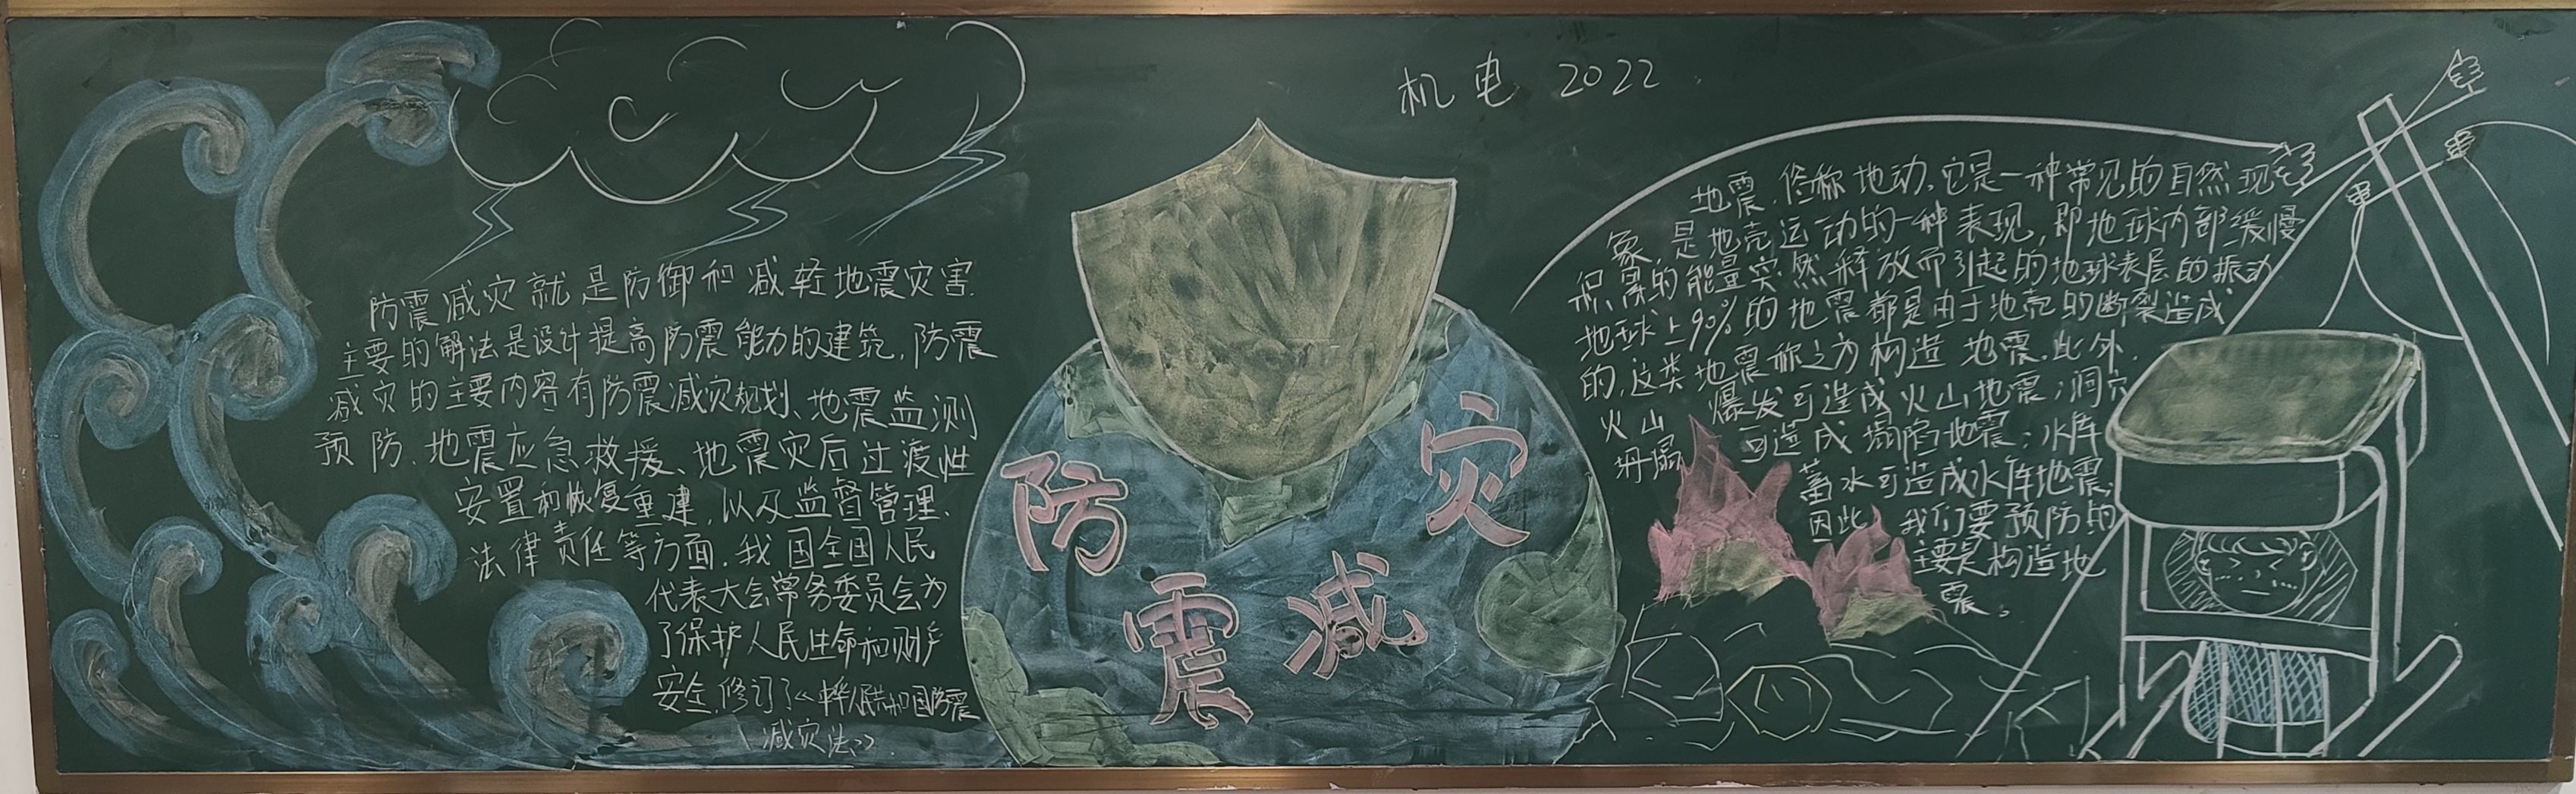 机电 2022
防震减灾就是防御和减轻地震灾害.
主要的解法是设计提高防震能力的建筑,防震
减灾的主要内容有防震减灾规划、地震监测
预防、地震应急救援、地震灾后过渡性
安置和恢复重建,以及监督管理、
法律责任等方面.我国全国人民
代表大会常务委员会为
了保护人民生命和财产
安全,修订了《中华人民共和国防震
减灾法》
防震减灾
地震,俗称地动,它是一种常见的自然现
象,是地壳运动的一种表现,即地球内部缓慢
积累的能量突然释放而引起的地球表层的振动
地球上90%的地震都是由于地壳的断裂造成
的,这类地震称之为构造地震.此外.
火山爆发可造成火山地震;洞穴
坍塌可造成塌陷地震;水库
蓄水可造成水库地震;
因此,我们要预防的
主要是构造地
震。